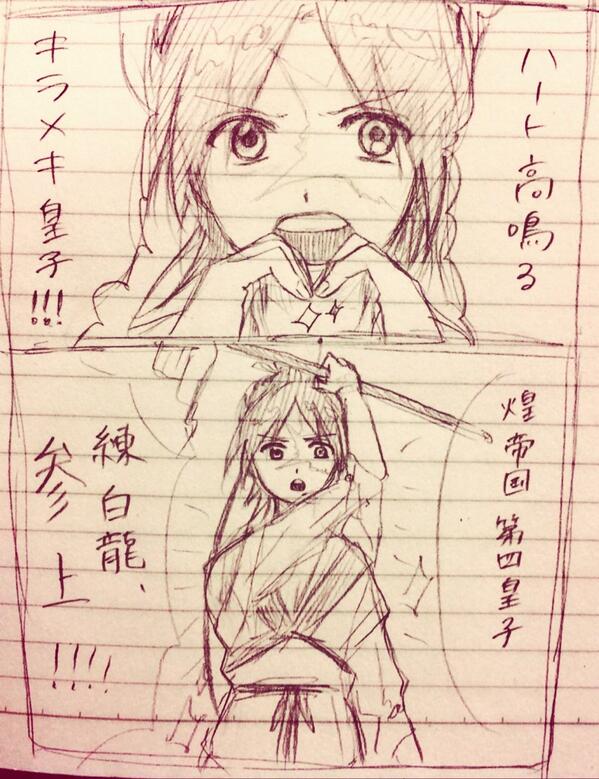 ハート高鳴る
キラメキ皇子!!!
煌帝国 第四皇子
練白龍、
参上!!!!